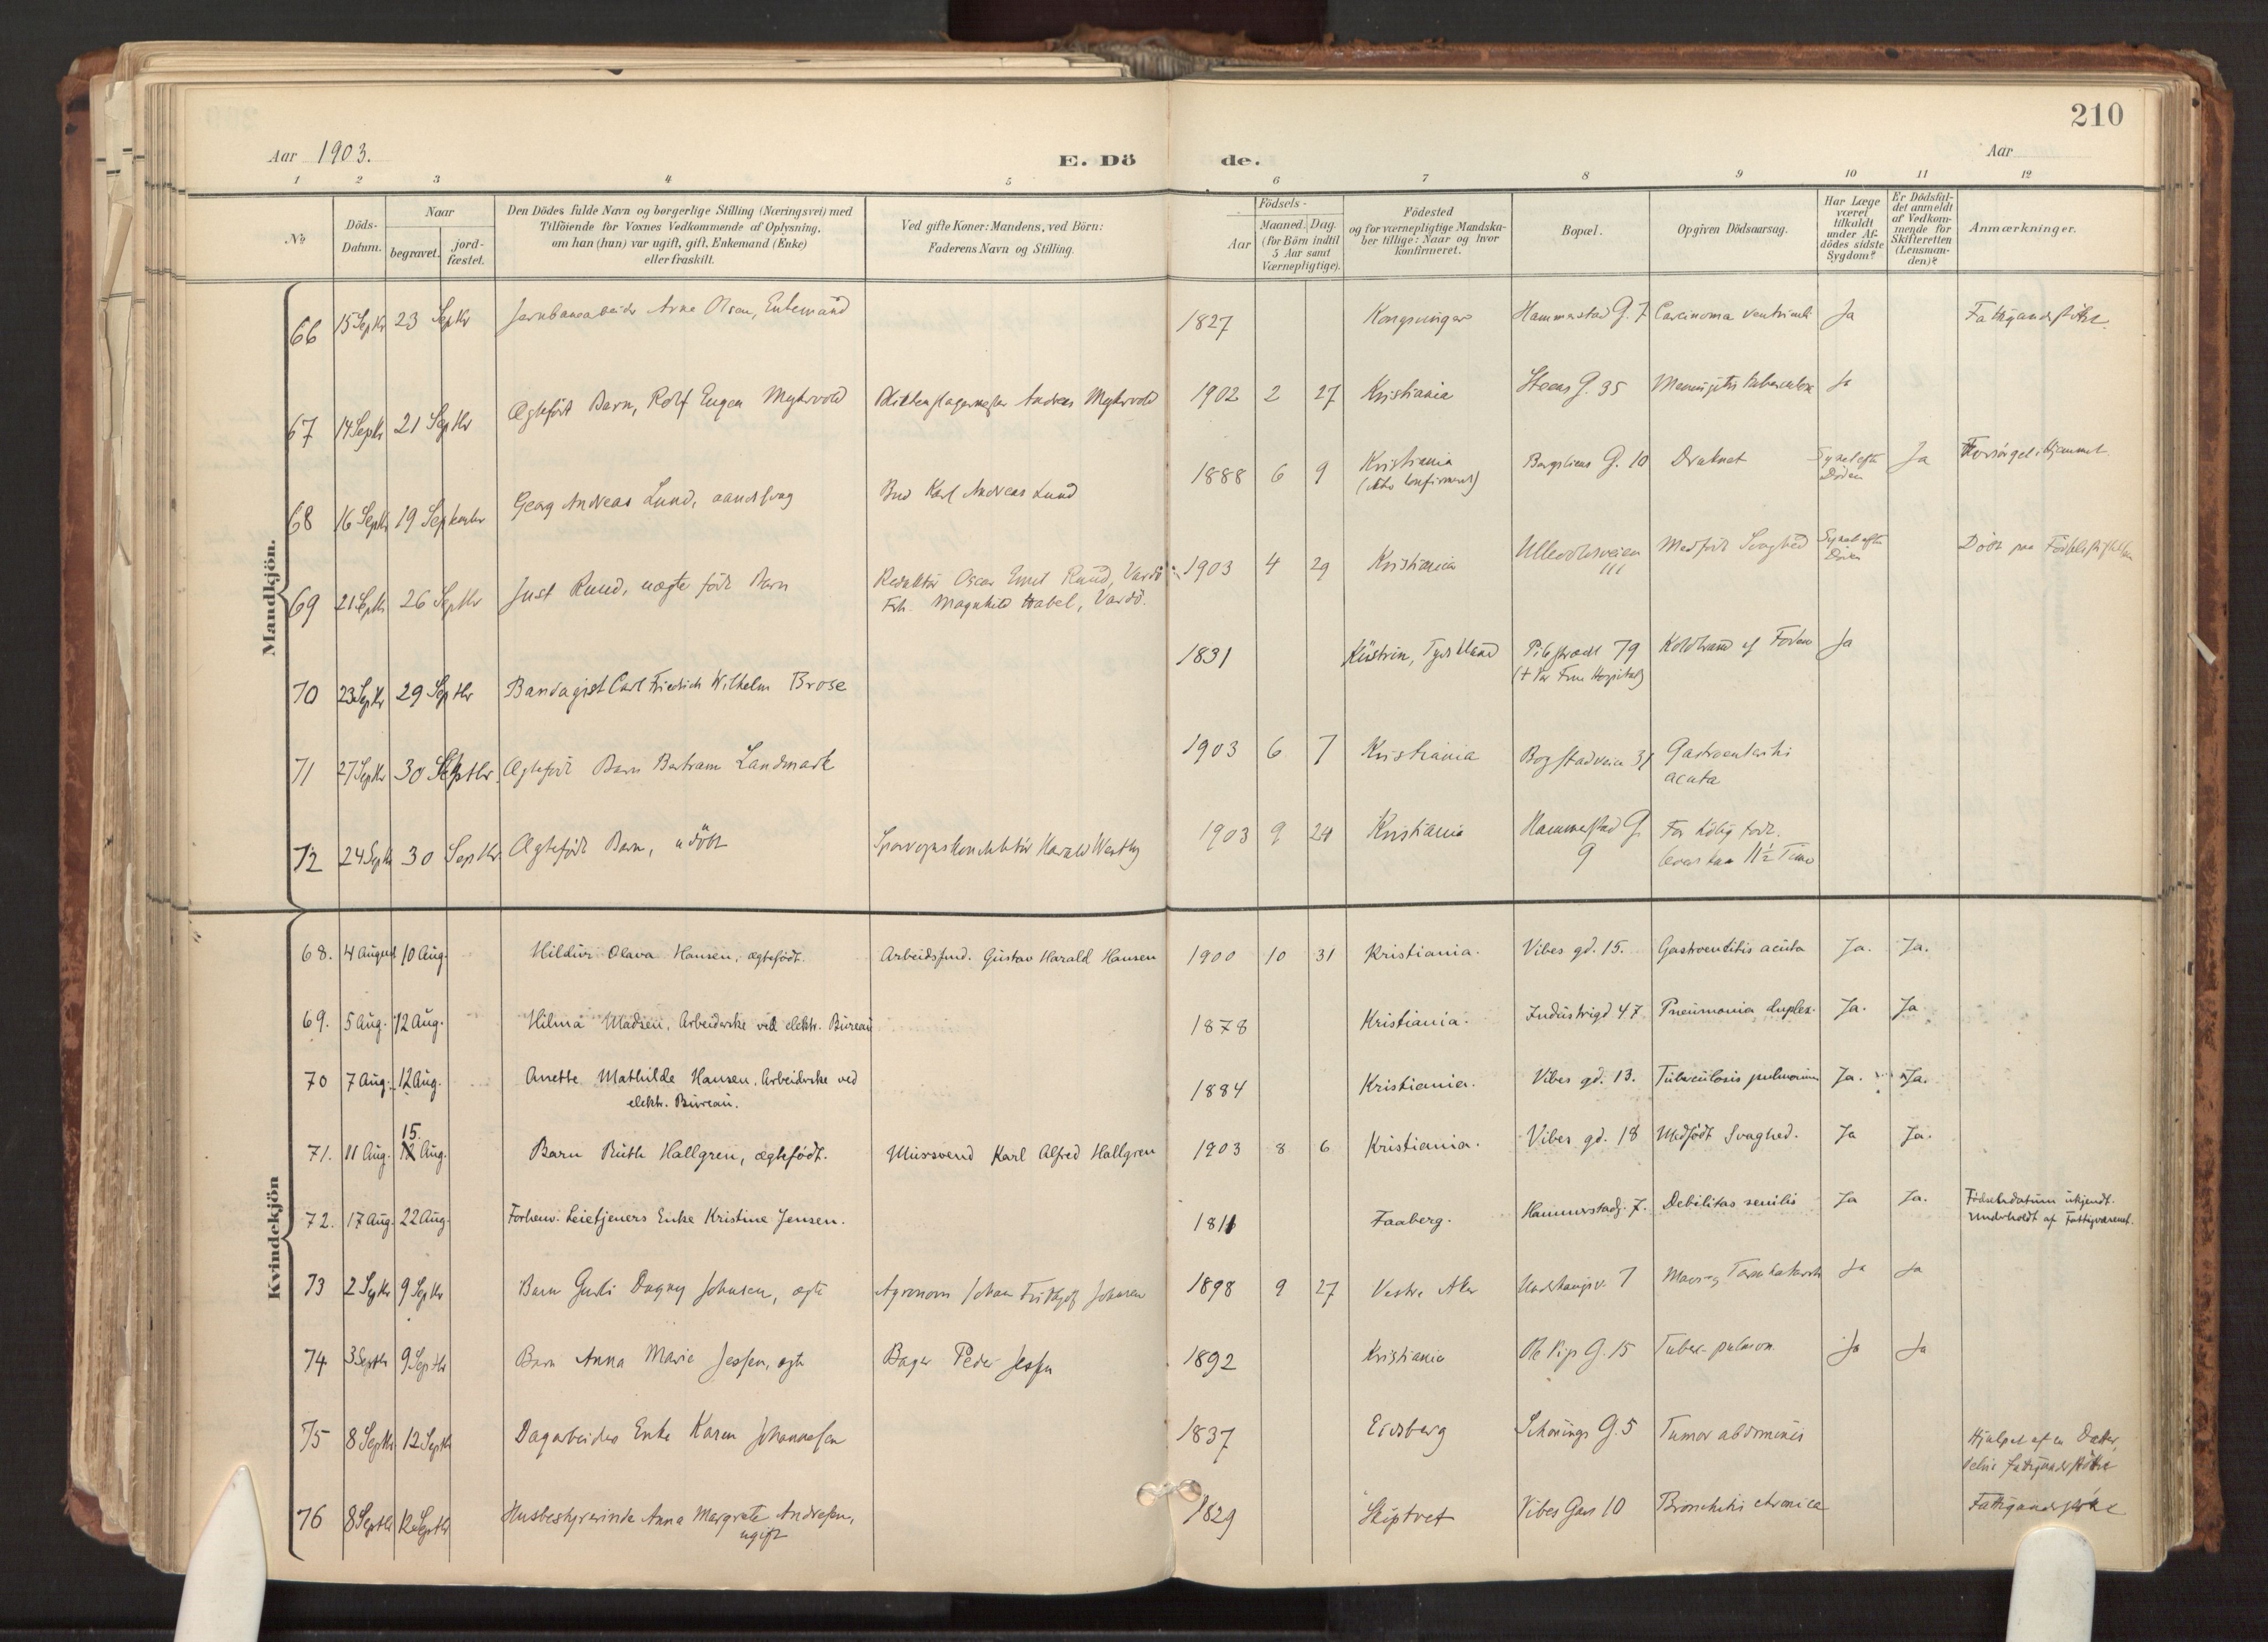 210
Aar 1903.
E. Dö de.
Aar
1 2 3 4 5 6 7 8 9 10 11 12
No
Döds-Datum.
Naar
begravet.
jord-fæstet.
Den Dödes fulde Navn og borgerlige Stilling (Næringsvei) med
Tilföiende for Voxnes Vedkommende af Oplysning,
om han (hun) var ugift, gift, Enkemand (Enke)
eller fraskilt.
Ved gifte Koner: Mandens, ved Börn:
Faderens Navn og Stilling.
Födsels-
Aar
Maaned. Dag.
(for Börn indtil
5 Aar samt
Værnepligtige).
Födested
og for værnepligtige Mandska-
ber tillige: Naar og hvor
konfirmeret.
Bopæl.
Opgiven Dödsaarsag.
Har Læge
været
tilkaldt
under Af-
dödes sidste
Sygdom?
Er Dödsfal-
det anmeldt
af Vedkom-
mende for
Skifteretten
(Lensman-
den)?
Anmærkninger.
Mandkjön.
66 15 Septbr 23 Septbr Jernbanearbeider Arne Olsen, Enkemand 1827 Kongsvinger Hammerstad G. 7 Carcinoma ventriculi Ja Fattigunderstöttet.
67 14 Septbr 21 Septbr Ægtefödt Barn, Rolf Eugen Myhrvold Blikkenslagermester Andreas Myhrvold 1902 2 27 Kristiania Steens G. 35 Meningitis tuberculosa Ja
68 16 Septbr 19 September Georg Andreas Lund, aandssvag Bud Karl Andreas Lund 1888 6 9 Kristiania
(ikke konfirmeret) Bergsliens G. 10 Druknet Synet efter
Döden Ja Forsörget i Hjemmet
69 21 Septbr 26 Septbr Just Ruud, uægte födt Barn Redaktör Oscar Emil Ruud, Vardö
Frk. Magnhild Habel, Vardö. 1903 4 29 Kristiania Ullevoldsveien
111 Medfödt Svaghed Synet efter
Döden Död paa Födselsstiftelsen
70 23 Septbr 29 Septbr Bandagist Carl Friedrich Wilhelm Brose 1831 Küstrin, Tyskland Pilestrædet 79
(† Vor Frue Hospital) Koldbrand af Foden Ja
71 27 Septbr 30 Septbr. Ægtefödt Barn Bertram Landmark 1903 6 7 Kristiania Bogstadveien 31 Gastroenteritis
acuta
72 24 Septbr 30 Septbr Ægtefödt Barn, udöbt Sporvognskonduktör Harald Westby 1903 9 24 Kristiania Hammerstad G.
9 For tidlig födt.
levet kun 11½ Time
Kvindekjön
68. 4 August 10 Aug. Hildur Olava Hansen, ægtefödt. Arbeidsfmd. Gustav Harald Hansen 1900 10 31 Kristiania. Vibes gd. 15. Gastroenteritis acuta Ja. Ja.
69. 5 Aug. 12 Aug. Hilma Madsen, Arbeiderske ved elektr. Bureau 1878 Kristiania. Industrigd 47 Pneumonia duplex. Ja. Ja.
70 7 Aug. 12 Aug. Anette Mathilde Hansen. Arbeiderske ved
elektr. Bureau. 1884 Kristiania. Vibes gd. 13. Tuberculosis pulmonum Ja. Ja.
71. 11 Aug. 15. Aug. Barn Ruth Hallgren, ægtefödt. Mursvend Karl Alfred Hallgren 1903 8 6 Kristiania. Vibes gd. 18 Medfödt Svaghed. Ja Ja.
72. 17 Aug. 22 Aug. Forhenv. Leietjeners Enke Kristine Jensen. 1811 Faaberg. Hammerstadg. 7. Debilitas senilis Ja Ja. Födselsdatum ukjendt.
Underholdt af Fattigvæsenet.
73 2 Septbr 9 Septbr Barn Gudi Dagny Johnsen, ægte Agronom Johan Fridtjof Johnsen 1898 9 27 Vestre Aker 7 Mave- og Tarmkatarrh Ja Ja
74 3 Septbr 9 Septbr Barn Anna Marie Jessen, ægte Bager Peder Jessen 1892 Kristiania Ole Vigs G. 15 Tuberc. pulmon. Ja Ja
75 8 Septbr 12 Septbr Dagarbeiders Enke Karen Johannesen 1837 Eidsberg Schönings G. 5 Tumor abdominis Hjulpet af en Datter,
delvis fattigunderstöttet
76 8 Septbr 12 Septbr Husbestyrerinde Anna Margrete Andresen,
ugift 1829 Skiptvet Vibes Gade 10 Bronchitis chronica Fattigunderstöttet